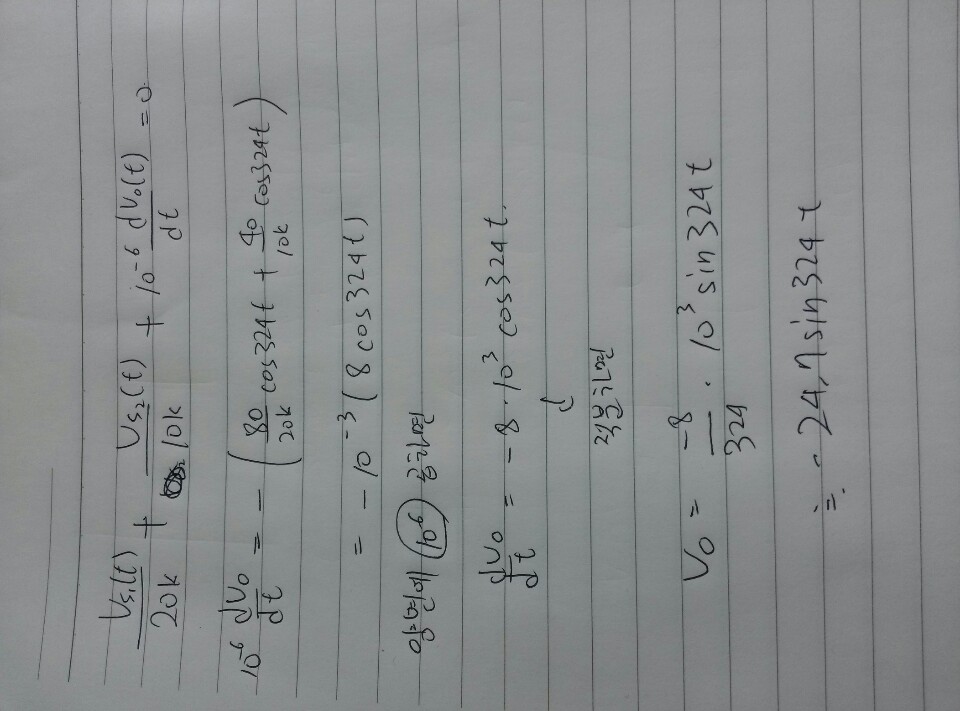 Vs₁(t)/20k + Vs₂(t)/10k + 10⁻⁶ dVo(t)/dt = 0
10⁻⁶ dVo/dt = - (80/20k cos324t + 40/10k cos324t)
= - 10⁻³ (8 cos324t)
양변에 10⁻⁶ 곱하면
dVo/dt = -8 · 10³ cos324t.
적분하면
Vo = -8/324 · 10³ sin324t
≒ - 24.7 sin324t